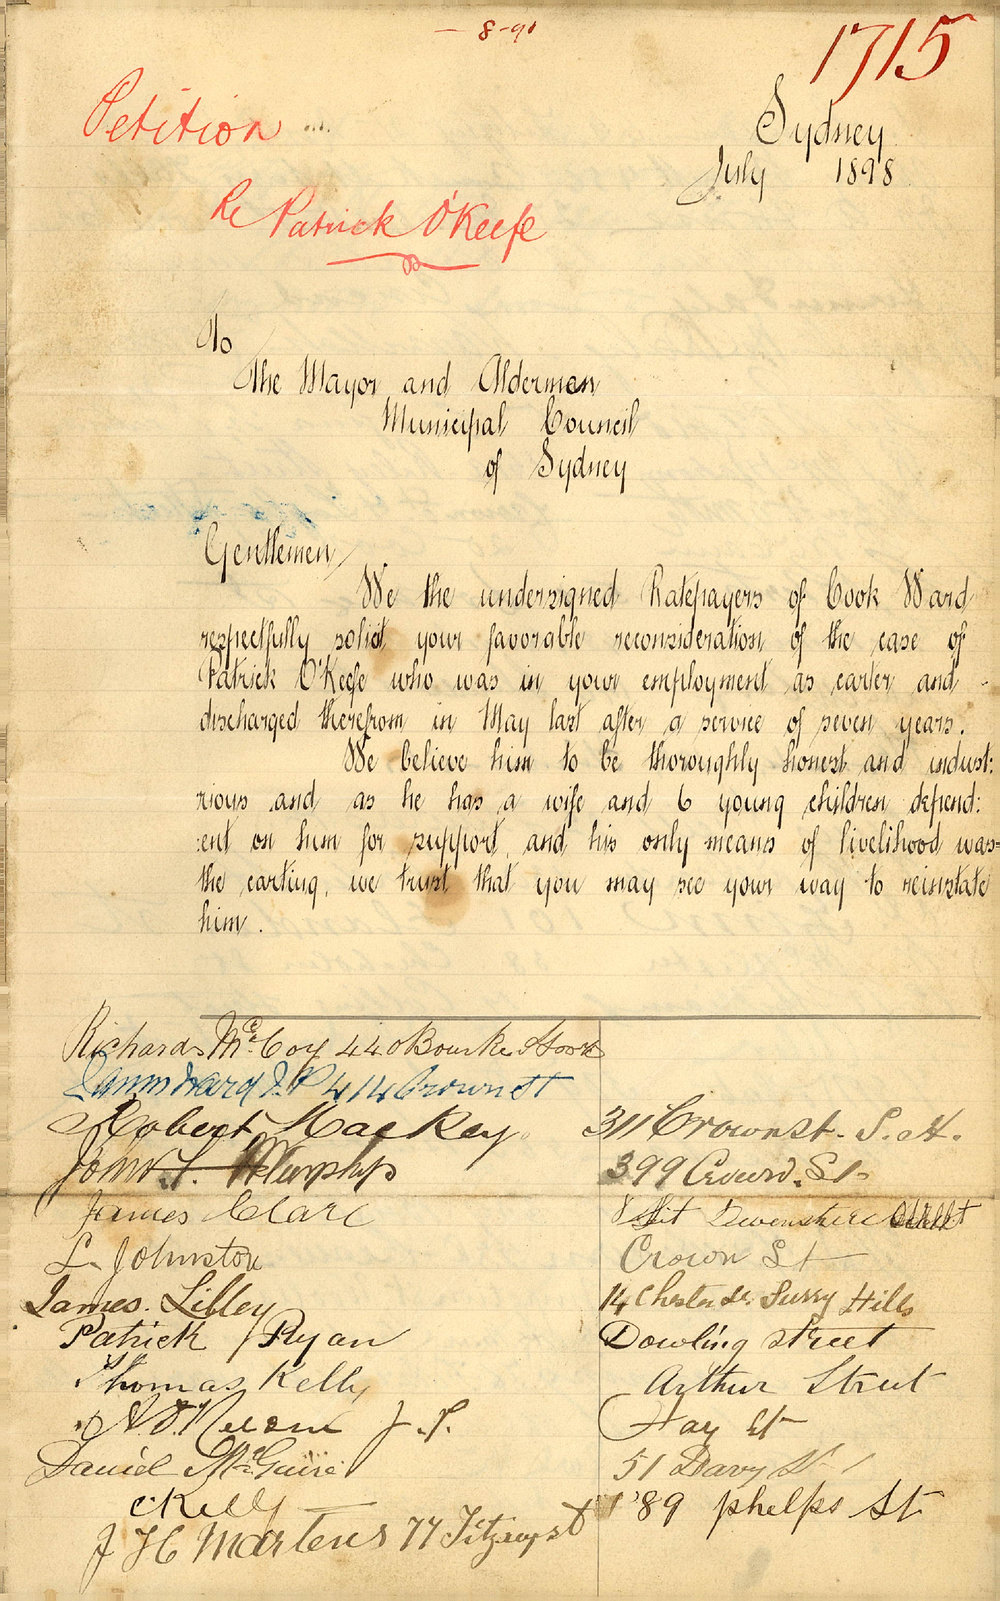 8-98
1715
Petition
Sydney
July 1898
Re Patrick O'Keefe
To
The Mayor and Aldermen
Municipal Council
of Sydney
Gentlemen/
We the undersigned Ratepayers of Cook Ward
respectfully solicit your favorable reconsideration of the case of
Patrick O'Keefe who was in your employment as carter and
discharged therefrom in May last after a service of seven years.
We believe him to be thoroughly honest and indust:
rious and as he has a wife and 6 young children depend:
:ent on him for support, and his only means of livelihood was
the carting, we trust that you may see your way to reinstate
him.
Richard McCoy 440 Bourke Street
Ward J.P 414 Crown St
Robert Mackey 311 Crown St. S.H.
John Murphy 399 Crown St
James Clare 8 Devonshire Street
L Johnston Crown St
James Lilley 14 Chester St. Surry Hills
Patrick Ryan Dowling Street
Thomas Kelly Arthur Street
J.P. Hay St
Daniel McGuire 51 Davy St
C Kelly 189 phelps St
J H C Martens 77 Fitzroy St